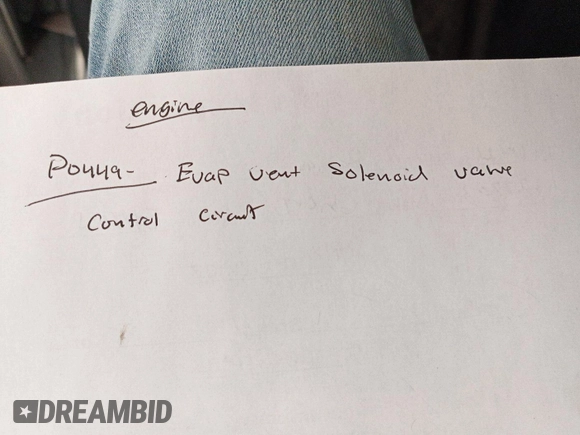 engine
P0449- Evap vent Solenoid valve
Control Circuit
DREAMBID